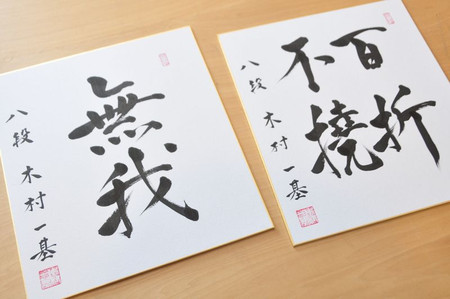 無我
八段 木村一基
百折
不撓
八段 木村一基